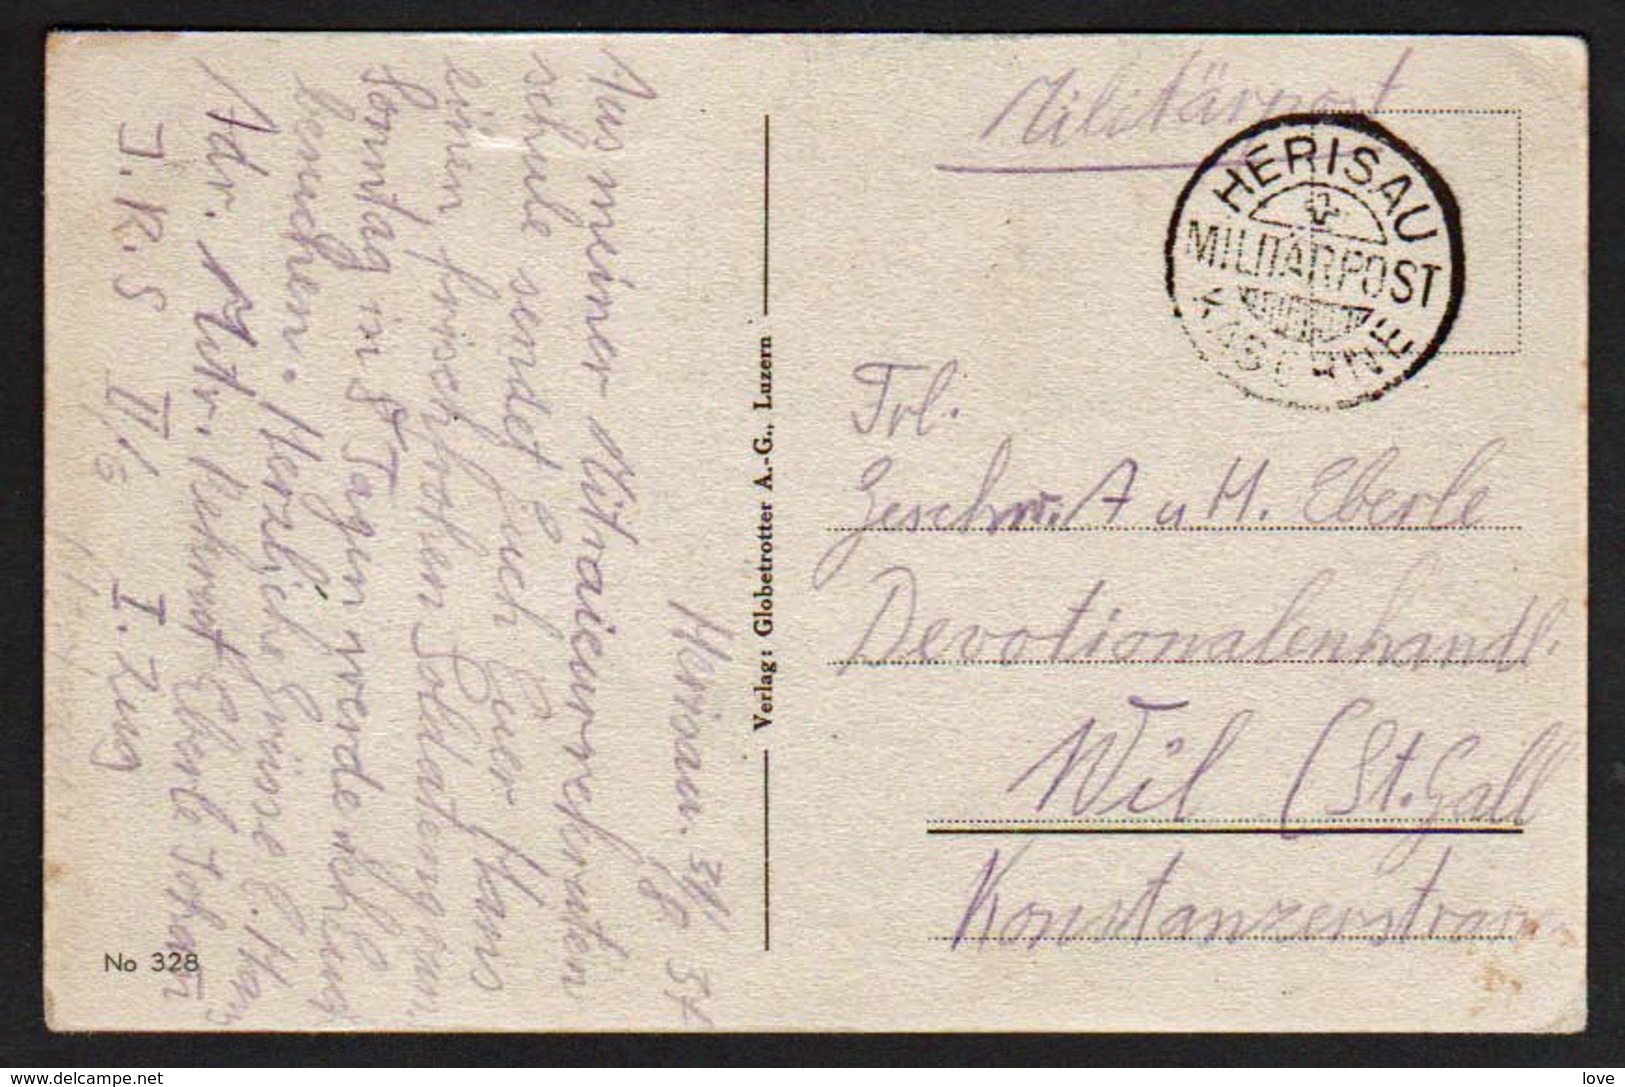 Militärpost
HERISAU
MILITÄRPOST
KASERNE
Frl.
Geschw. A u. M. Eberle
Devotionalienhandl.
Wil (St. Gall
Konstanzerstrasse
Verlag: Globetrotter A.-G., Luzern
Herisau. 31/8 37
Aus meiner Mitraieurrekruten
schule sendet Euch Euer Hans
einen frischfrohen Soldatengruss.
Sonntag in 8 Tagen werde ich Euch
besuchen. Herzliche Grüsse E. Hans
Adr. Mitr. Rekrut Eberle Johann
I. R. S II/6 I. Zug
No 328
delcampe.net
love